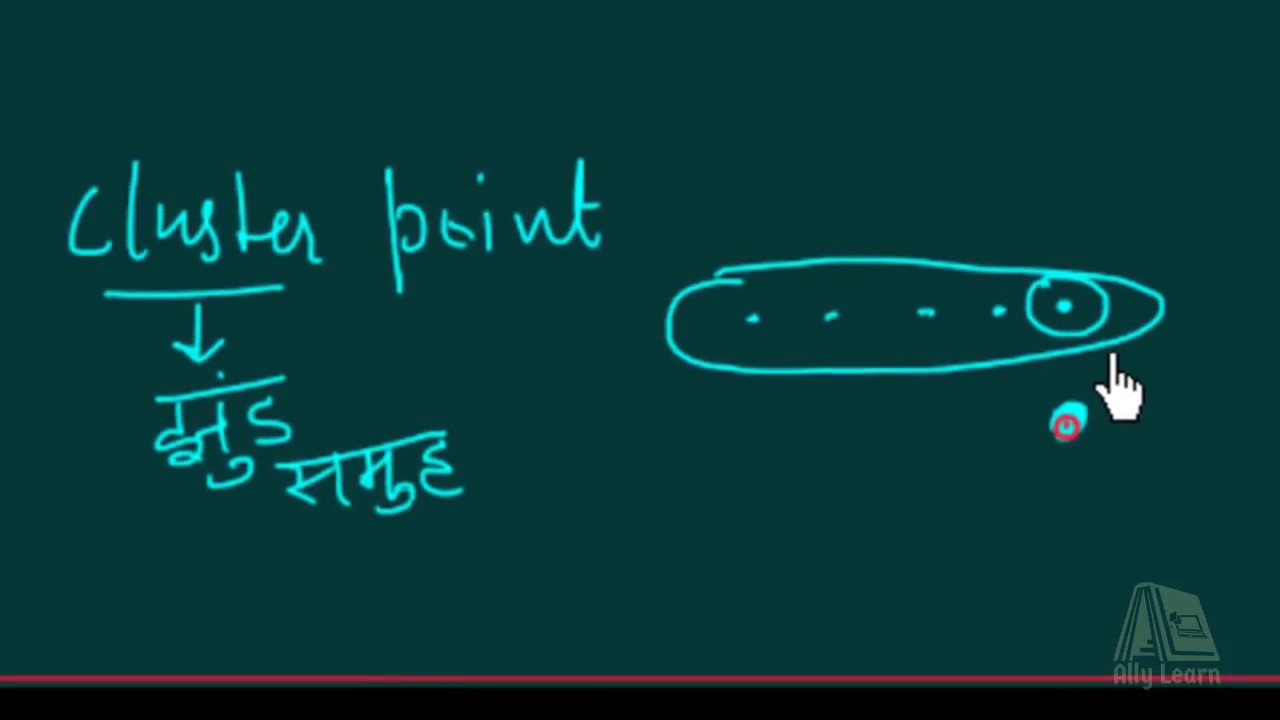 cluster point
झुंड
समुह
Ally Learn